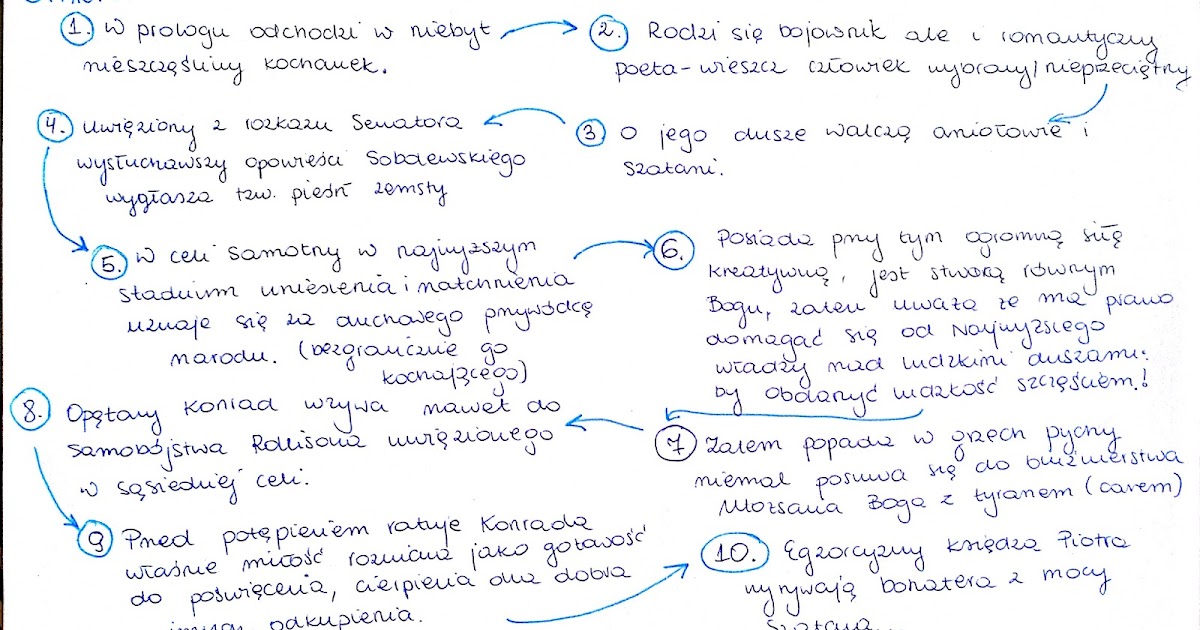 1. W prologu odchodzi w niebyt
nieszczęśliwy kochanek.
2. Rodzi się bojownik ale i romantyczny
poeta-wieszcz człowiek wybrany/nieprzeciętny
3 O jego dusze walczą aniołowie i
szatani.
4. Uwięziony z rozkazu Senatora
wysłuchawszy opowieści Sobolewskiego
wygłasza tzw. pieśń zemsty
5. W celi samotny w najwyższym
stadium uniesienia i natchnienia
uznaje się za duchowego przywódcę
narodu. (bezgranicznie go
kochającego)
6. Posiada przy tym ogromną siłę
kreatywną, jest stwórcą równym
Bogu, zatem uważa że ma prawo
domagać się od Najwyższego
władzy nad ludzkimi duszami.
by obdarzyć ludzkość szczęściem!
7 Zatem popada w grzech pychy
niemal posuwa się do bluźnierstwa
Utożsamia Boga z tyranem (carem)
8. Opętany Konrad wzywa nawet do
samobójstwa Rollisona uwięzionego
w sąsiedniej celi.
9 Przed potępieniem ratuje Konrada
właśnie miłość rozmiana jako gotowość
do poświęcenia, cierpienia dla dobra
odkupienia.
10. Egzorcyzmy księdza Piotra
wyrywają bohatera z mocy
szatana